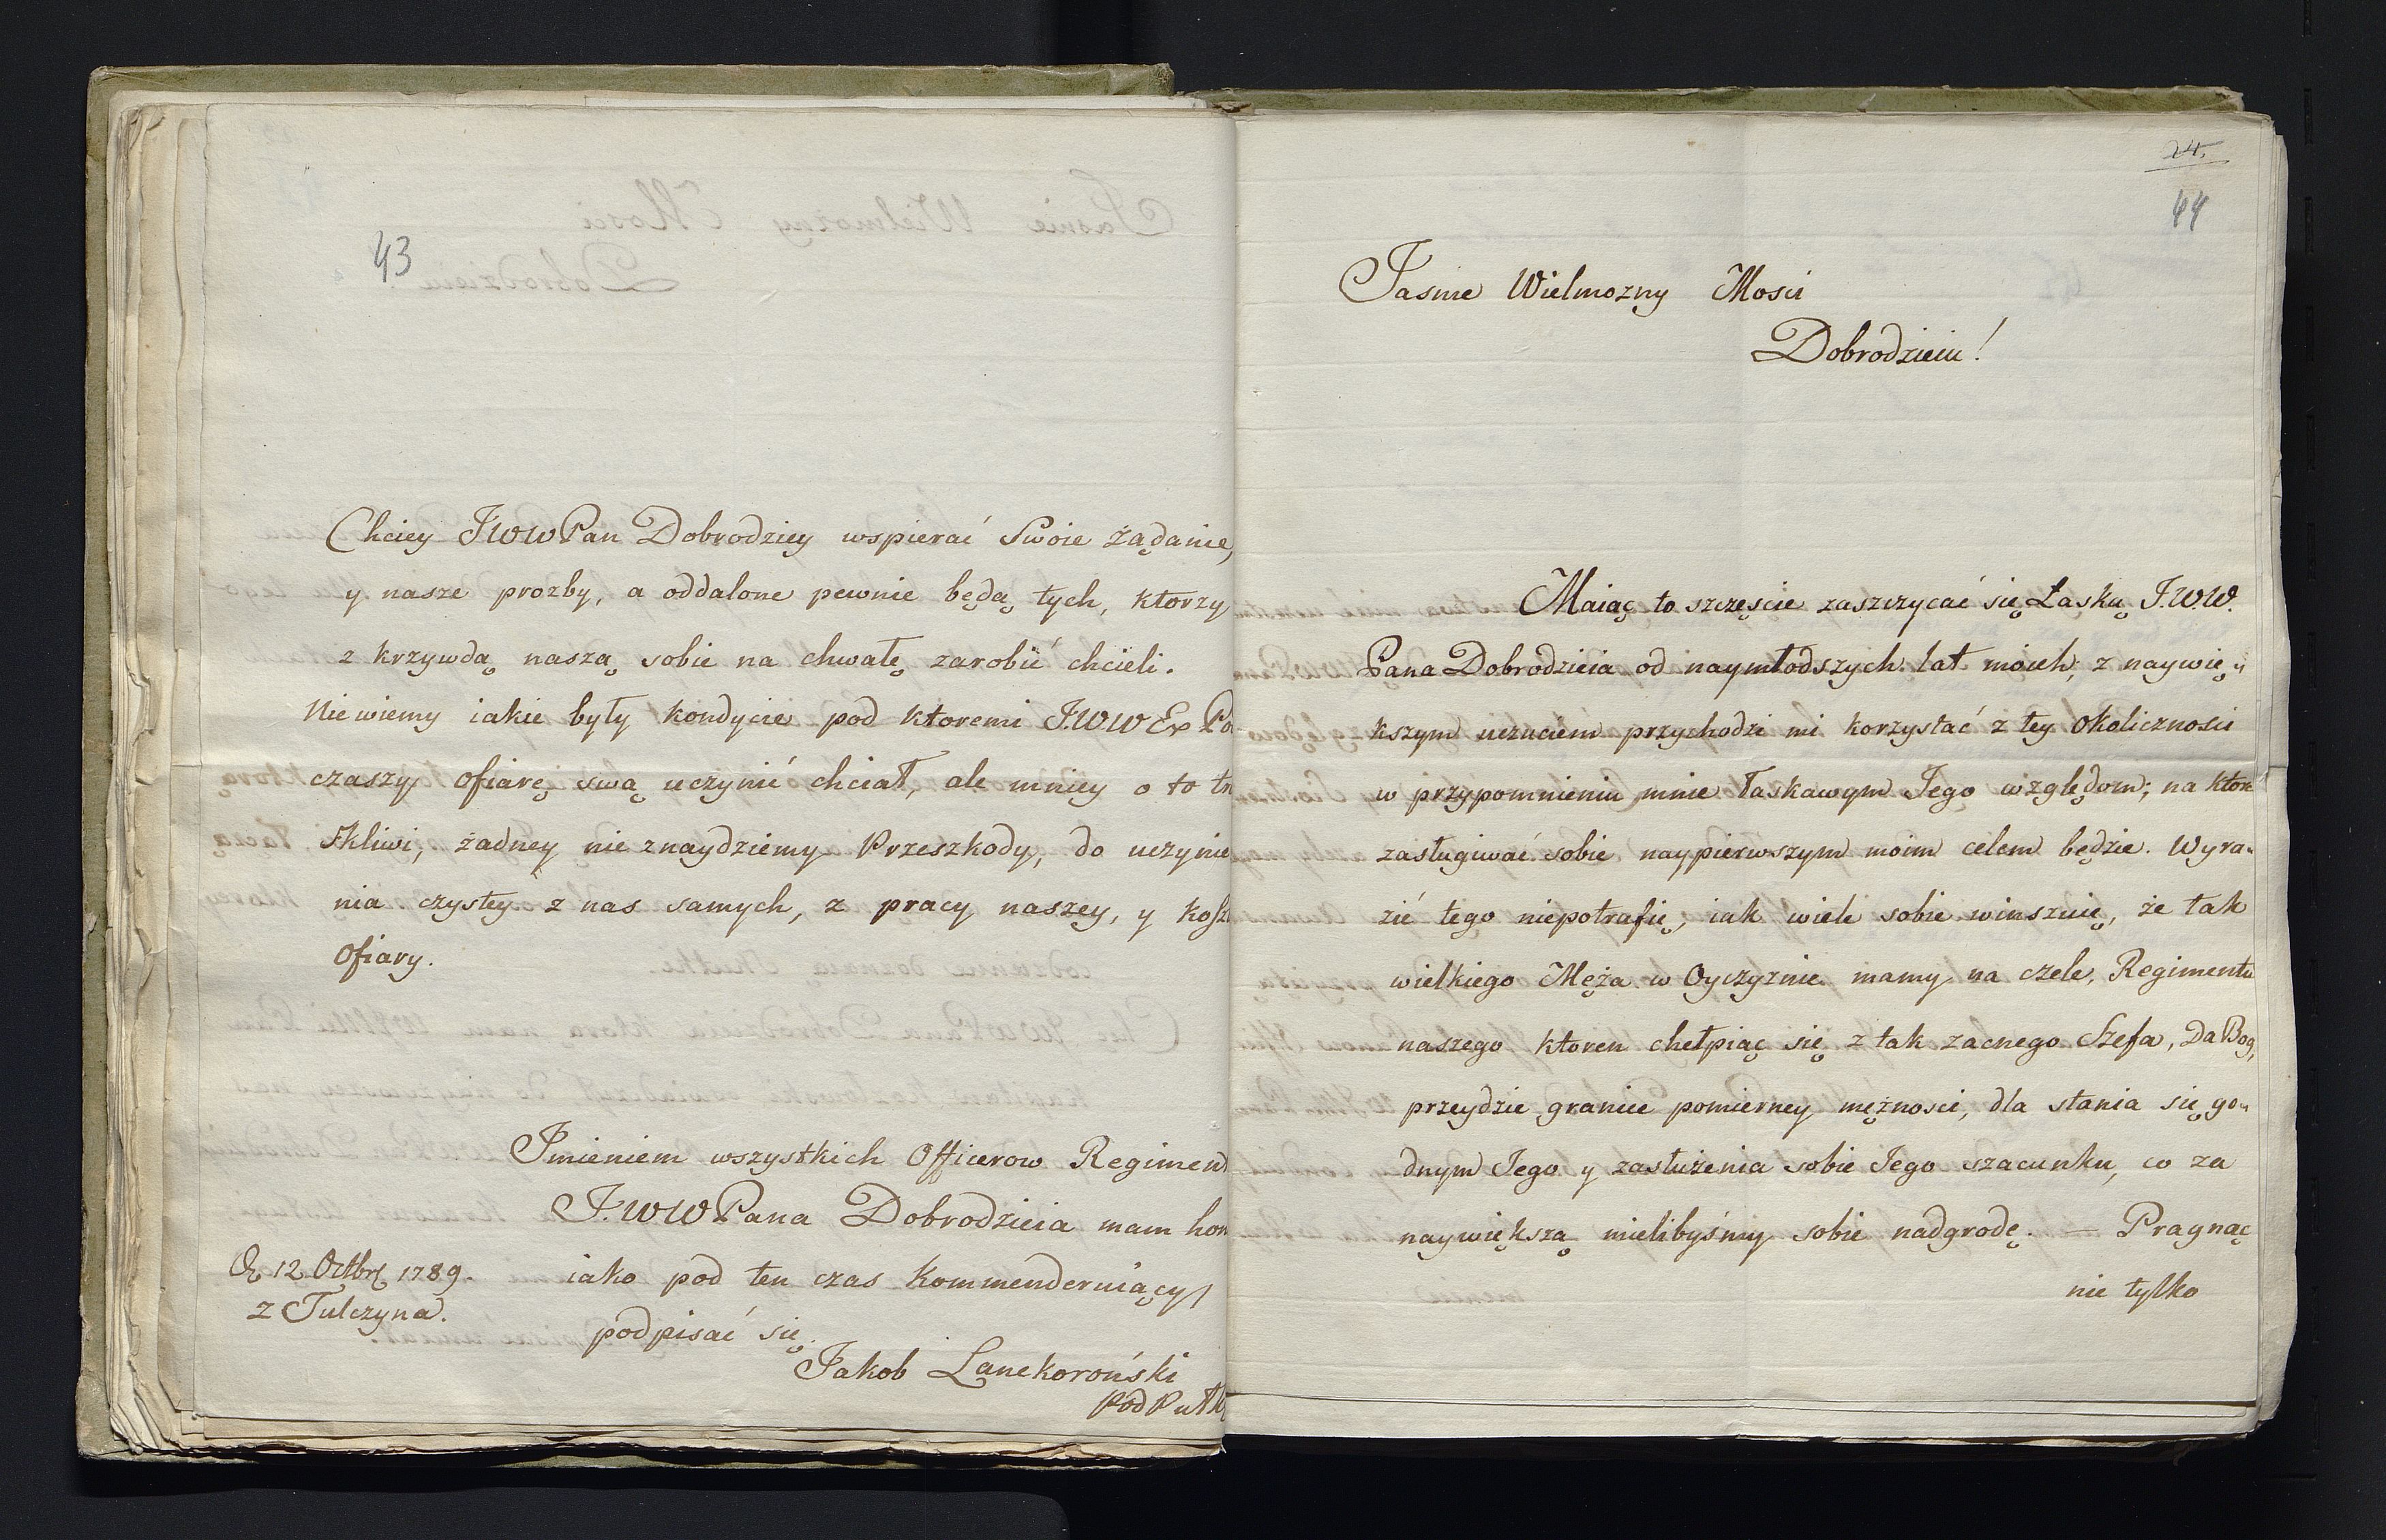 43
Chciey JWWPan Dobrodziey wspierać Swoie żądanie,
y nasze prozby, a oddalone pewnie będą tych, ktorzy
z krzywdą naszą sobie na chwałę zarobić chcieli.
Nie wiemy iakie były kondycie pod ktoremi JWW Ex Po
czaszy ofiarę swą uczynić chciał, ale mniey o to tro
skliwi, żadney nie znaydziemy Przeszkody, do uczynie
nia czystey z nas samych, z pracy naszey, y kosz
Ofiary.
Jmieniem wszystkich Officerow Regimen
J.WWPana Dobrodzieia mam hon
iako pod ten czas Kommenderuiący
podpisać się
D 12 Octbr 1789.
z Tulczyna.
Jakob Lanckoroński
PodPułk
24.
44
Jasnie Wielmozny Mosci
Dobrodzieiu!
Maiąc to szczęscie zaszczycać się Łaską J.W.W.
Pana Dobrodzieia od naymłodszych lat moich, z naywię„
kszym uczuciem przychodzi mi korzystać z tey okolicznosci
w przypomnieniu mnie łaskawym Jego względom; na ktore
zasługiwać sobie naypierwszym moim celem będzie. Wyra„
zić tego niepotrafię, iak wiele sobie winszuię, że tak
wielkiego Męża w Oyczyznie mamy na czele, Regimentu
naszego ktoren chełpiąc się z tak zacnego Szefa, Da Bog,
przeydzie granice pomierney mężnosci, dla stania się go„
dnym Jego y zasłużenia sobie Jego szacunku, co za
naywiększą mielibyśmy sobie nadgrodę. — Pragnąc
nie tylko